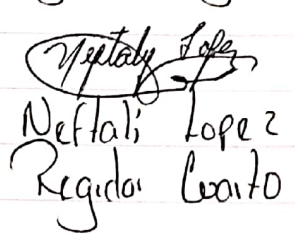 Neptaly Lope
Neftali Lopez
Regidor Cuarto